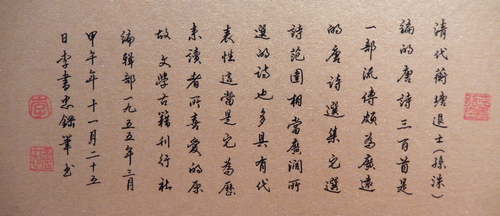 清代蘅塘退士(孫洙)
編的唐詩三百首是
一部流傳頗為廣遠
的唐詩選集它選
詩范圍相當廣闊所
選的詩也多具有代
表性這當是它為歷
來讀者所喜愛的原
故 文學古籍刊行社
編輯部一九五五年三月
甲午年十一月二十五
日李書忠鋼筆书